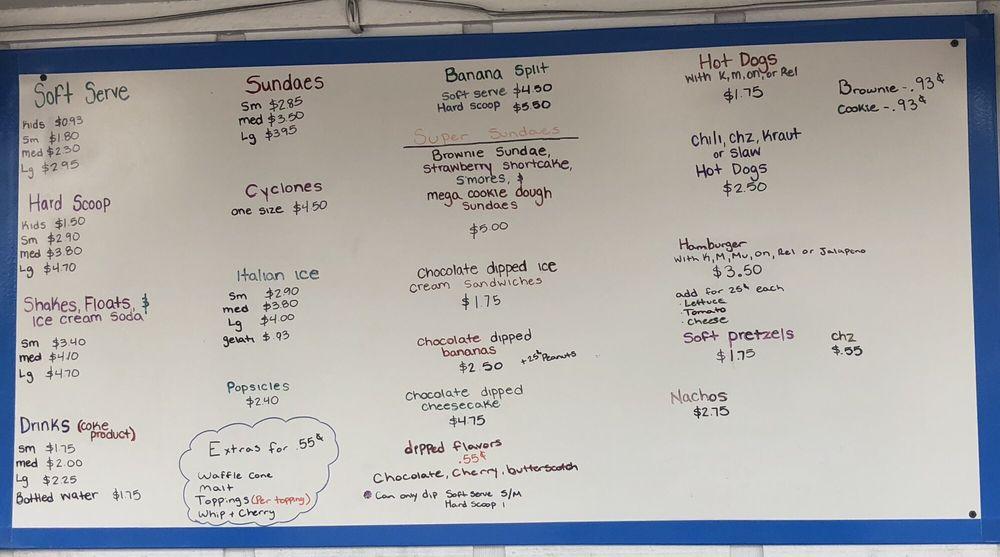 Soft Serve
Kids $0.93
Sm $1.80
med $2.30
Lg $2.95
Hard Scoop
Kids $1.50
Sm $2.90
med $3.80
Lg $4.70
Shakes, Floats, &
Ice cream Soda
Sm $3.40
med $4.10
Lg $4.70
Drinks (coke
product)
Sm $1.75
med $2.00
Lg $2.25
Bottled water $1.75
Sundaes
Sm $2.85
med $3.50
Lg $3.95
Cyclones
one size $4.50
Italian ice
Sm $2.90
med $3.80
Lg $4.00
gelati $.93
Popsicles
$2.40
Extras for .55¢
Waffle Cone
Malt
Toppings (Per topping)
Whip + Cherry
Banana Split
Soft serve $4.50
Hard scoop $5.50
Super Sundaes
Brownie Sundae,
Strawberry shortcake,
S'mores, &
mega cookie dough
Sundaes
$5.00
Chocolate dipped ice
cream Sandwiches
$1.75
chocolate dipped
bananas
$2.50 +25¢ Peanuts
chocolate dipped
cheesecake
$4.75
dipped flavors
.55¢
Chocolate, Cherry, butterscotch
Can only dip Soft Serve S/M
Hard Scoop 1
Hot Dogs
with K, m, on, or Rel
$1.75
chili, chz, Kraut
or slaw
Hot Dogs
$2.50
Hamburger
with K, M, Mu, on, Rel or Jalapeno
$3.50
add for 25¢ each
· Lettuce
· Tomato
· Cheese
Soft pretzels chz
$1.75 $.55
Nachos
$2.75
Brownie - .93¢
Cookie - .93¢